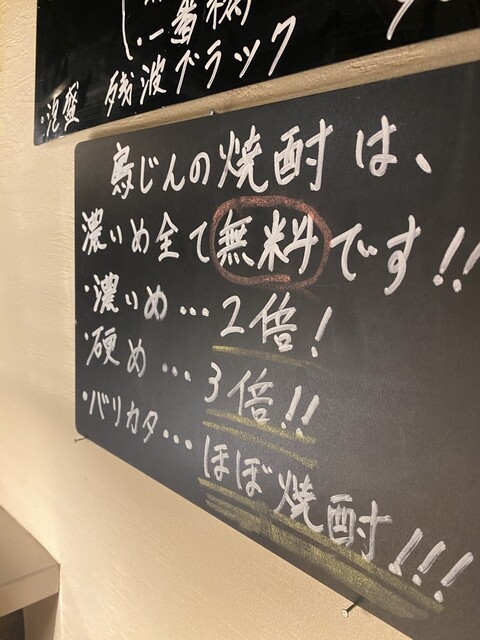 ・一番
・泡盛 残波ブラック
鳥じんの焼酎は、
濃いめ全て無料です!!
・濃いめ…2倍!
・硬め…3倍!!
・バリカタ…ほぼ焼酎!!!